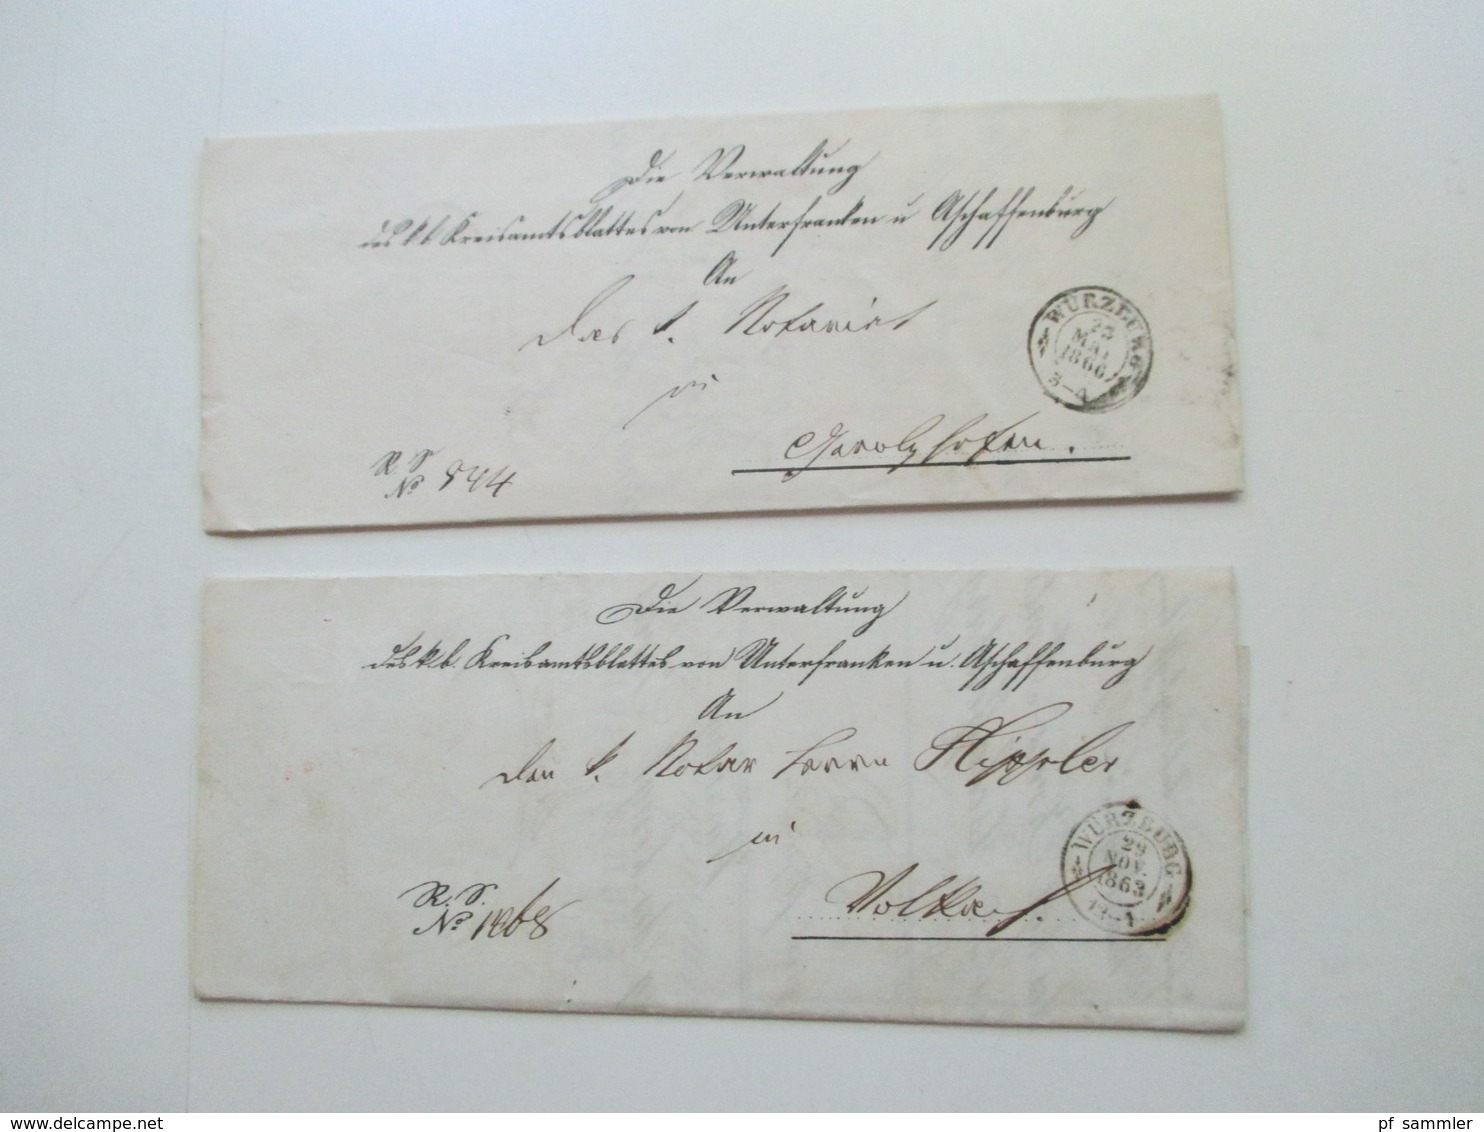 Die Verwaltung
des k. b. Kreisamtsblattes von Unterfranken u Aschaffenburg
An
das k. Notariat
in
Gerolzhofen.
WÜRZBURG
23
MAI
1866
R. S.
No 944
Die Verwaltung
des k. b. Kreisamtsblattes von Unterfranken u. Aschaffenburg
An
den k. Notar Herrn Hippler
in
Volkach.
WÜRZBURG
29
NOV.
1863
12-1
R. S.
No 1268
www.delcampe.net
pf_sammler